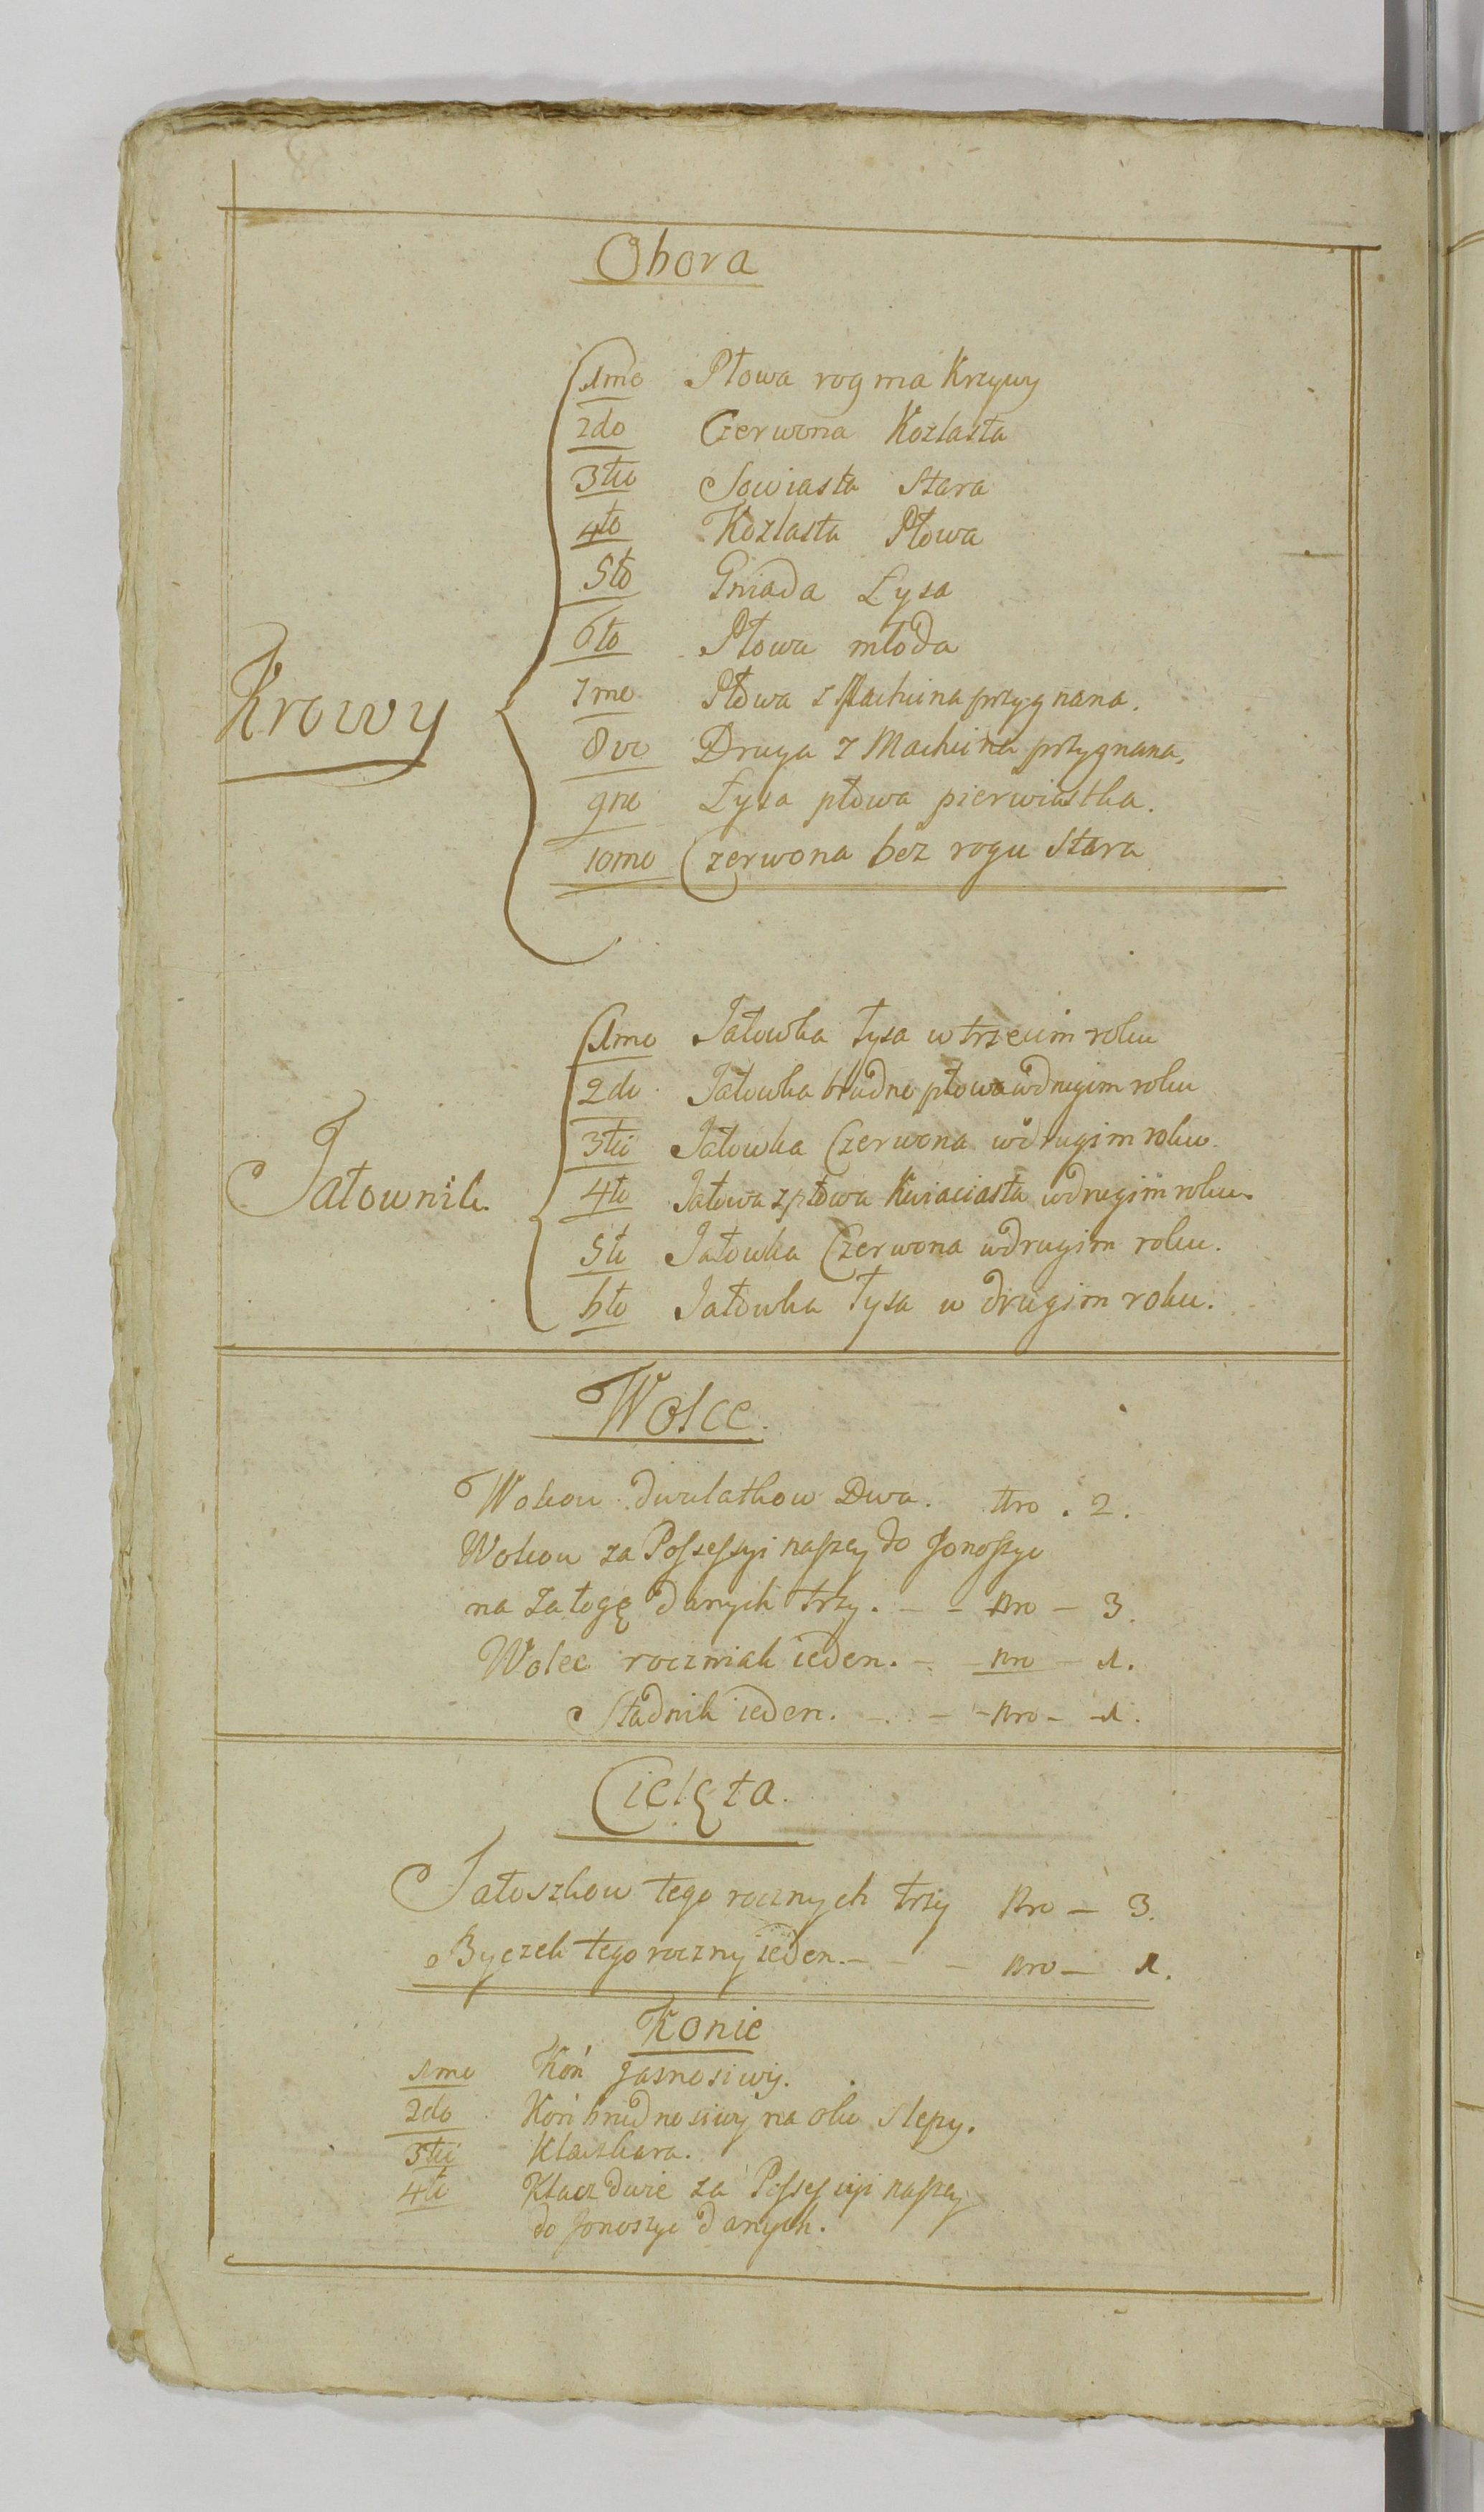 Obora
Krowy
1mo Płowa rog ma Krzywy
2do Czerwona Kozlasta
3tio Sowiasta Stara
4to Kozlasta Płowa
5to Gniada Łysa
6to Płowa młoda
7mo Płowa z Machcina przygnana.
8vo Druga z Machcina przygnana,
9no Łysa płowa pierwiastka.
10mo Czerwona bez rogu Stara
Jałownik
1mo Jałowka łysa w trzecim roku
2do Jałowka brudno płowa w drugim roku
3tio Jałowka Czerwona w drugim roku
4to Jałowa z płowa Kwiaciasta w drugim roku.
5to Jałowka Czerwona w drugim roku.
6to Jałowka łysa w drugim roku.
Wolce.
Wolcow dwulatkow Dwa. Nro . 2.
Wolcow za Possessyi naszey do Jonoszyc
na Załogę danych trzy. - - Nro - 3.
Wolec roczniak ieden. - - Nro - 1.
Stadnik ieden. - - - Nro - 1.
Cielęta.
Jałoszkow tego rocznych trzy Nro - 3.
Byczek tego roczny ieden. - - - Nro - 1.
Konie
1mo Koń Jasno siwy.
2do Koń brudno siwy na oko Slepy.
3tio Klacz kara.
4to Klacz dwie za Possessyi naszey
do Jonoszyc danych.